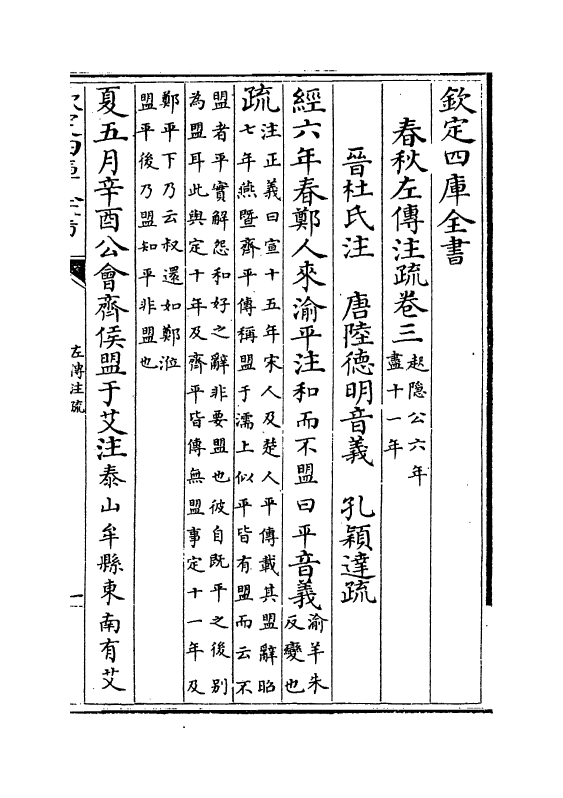 欽定四庫全書
春秋左傳注疏卷三
起隱公六年
盡十一年
晉杜氏注 唐陸德明音義 孔穎達疏
經六年春鄭人來渝平注和而不盟曰平音義
渝羊朱
反變也
疏
注正義曰宣十五年宋人及楚人平傳載其盟辭昭
七年燕暨齊平傳稱盟于濡上似平皆有盟而云不
盟者平實解怨和好之辭非要盟也彼自既平之後別
為盟耳此與定十年及齊平皆傳無盟事定十一年及
鄭平下乃云叔還如鄭涖
盟平後乃盟知平非盟也
夏五月辛酉公會齊侯盟于艾注泰山牟縣東南有艾
欽定四庫全書
左傳注疏
一